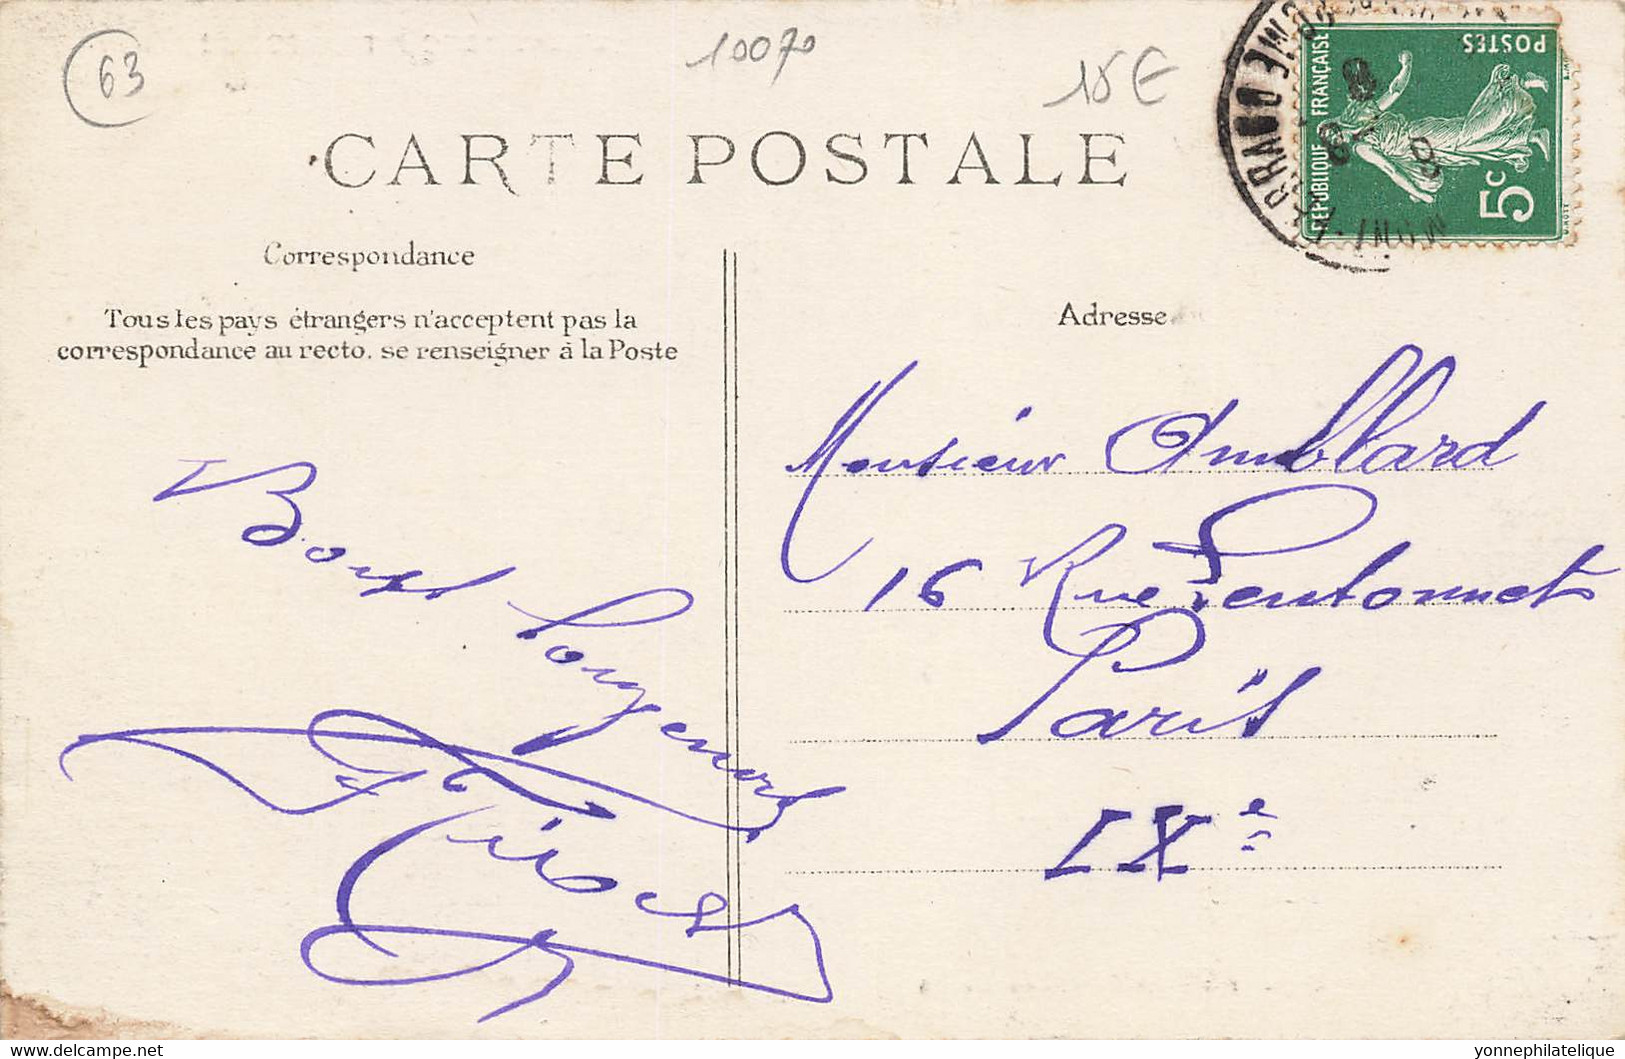 63
10070
15 E
CARTE POSTALE
RÉPUBLIQUE FRANÇAISE
POSTES
5c
MONT-FERRAND
DOME
Correspondance
Tous les pays étrangers n'acceptent pas la
correspondance au recto. se renseigner à la Poste
Adresse
Monsieur Amblard
16 Rue
Paris
IXe
Bons
www.delcampe.net
yonnephilatelique